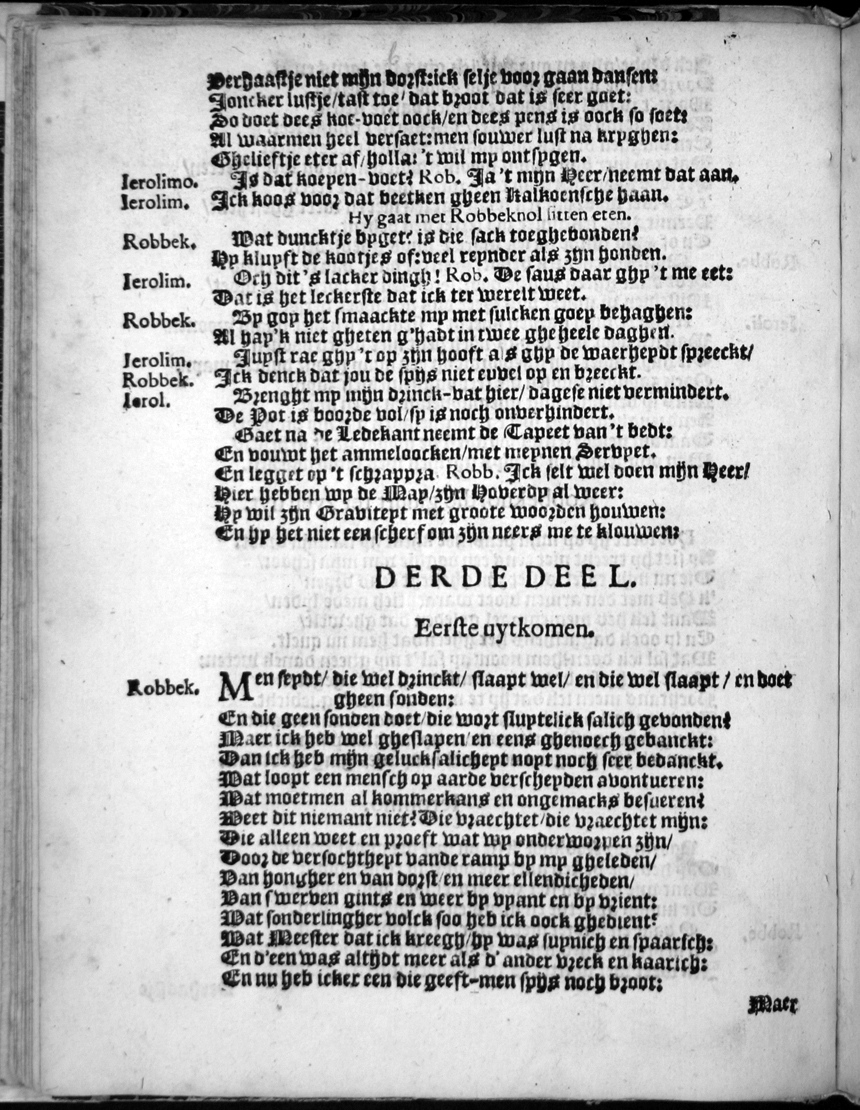 Verhaastje niet mijn dorst: ick selje voor gaan dansen:
Joncker lustje/ tast toe/ dat broot dat is seer goet:
So doet dees koe-voet oock/ en dees pens is oock so soet:
Al waarmen heel versaet: men souwer lust na kryghen:
Ghelieftje eter af/ holla: 't wil my ontsygen.
Ierolimo. Is dat koeyen-voet? Rob. Ja 't mijn Heer/ neemt dat aan.
Ierolim. Ick koos voor dat beetken gheen Kalkoensche haan.
Hy gaat met Robbeknol sitten eten.
Robbek. Wat duncktje byget? is die sack toeghebonden?
Hy kluyft de kootjes of: veel reynder als zijn honden.
Ierolim. Och dit 's lacker dingh! Rob. De saus daar ghy 't me eet:
Dat is het leckerste dat ick ter werelt weet.
Robbek. By gop het smaackte my met sulcken goey behaghen:
Al hay'k niet gheten g'hadt in twee gheheele daghen.
Jerolim. Juyst rae ghy 't op zijn hooft als ghy de waerheydt spreeckt/
Robbek. Ick denck dat jou de spijs niet euvel op en breeckt.
Ierol. Brenght my mijn drinck-vat hier/ dagese niet vermindert.
De Pot is boorde vol/ sy is noch onverhindert.
Gaet na de Ledekant neemt de Tapeet van 't bedt:
En vouwt het ammeloocken/ met meynen Servyet.
En legget op 't schrappra. Robb. Ick selt wel doen mijn Heer/
Hier hebben wy de May/ zijn Hoverdy al weer:
Hy wil zijn Graviteyt met groote woorden houwen:
En hy het niet een scherf om zijn neers me te klouwen:
DERDE DEEL.
Eerste uytkomen.
Robbek. Men seydt/ die wel drinckt/ slaapt wel/ en die wel slaapt/ en doet
gheen sonden:
En die geen sonden doet/ die wort sluytelick salich gevonden?
Maer ick heb wel gheslapen/ en eens ghenoech gebanckt:
Dan ick heb mijn gelucksalicheyt noyt noch seer bedanckt.
Wat loopt een mensch op aarde verscheyden avontueren:
Wat moetmen al kommerkans en ongemacks besueren?
Weet dit niemant niet? Die vraechtet/ die vraechtet mijn:
Die alleen weet en proeft wat wy onderworpen zijn/
Door de versochtheyt vande ramp by my gheleden/
Van hongher en van dorst/ en meer ellendicheden/
Van swerven gints en weer by vyant en by vrient:
Wat sonderlingher volck soo heb ick oock ghedient?
Wat Meester dat ick kreegh/ hy was suynich en spaarsch:
En d'een was altijdt meer als d' ander vreck en kaarich:
En nu heb icker een die geeft-men spijs noch broot:
Maer